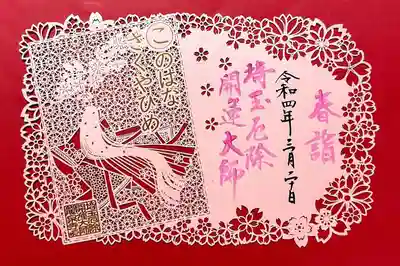 春詣
令和四年三月二日
埼玉厄除
開運大師
このはな
さくやひめ